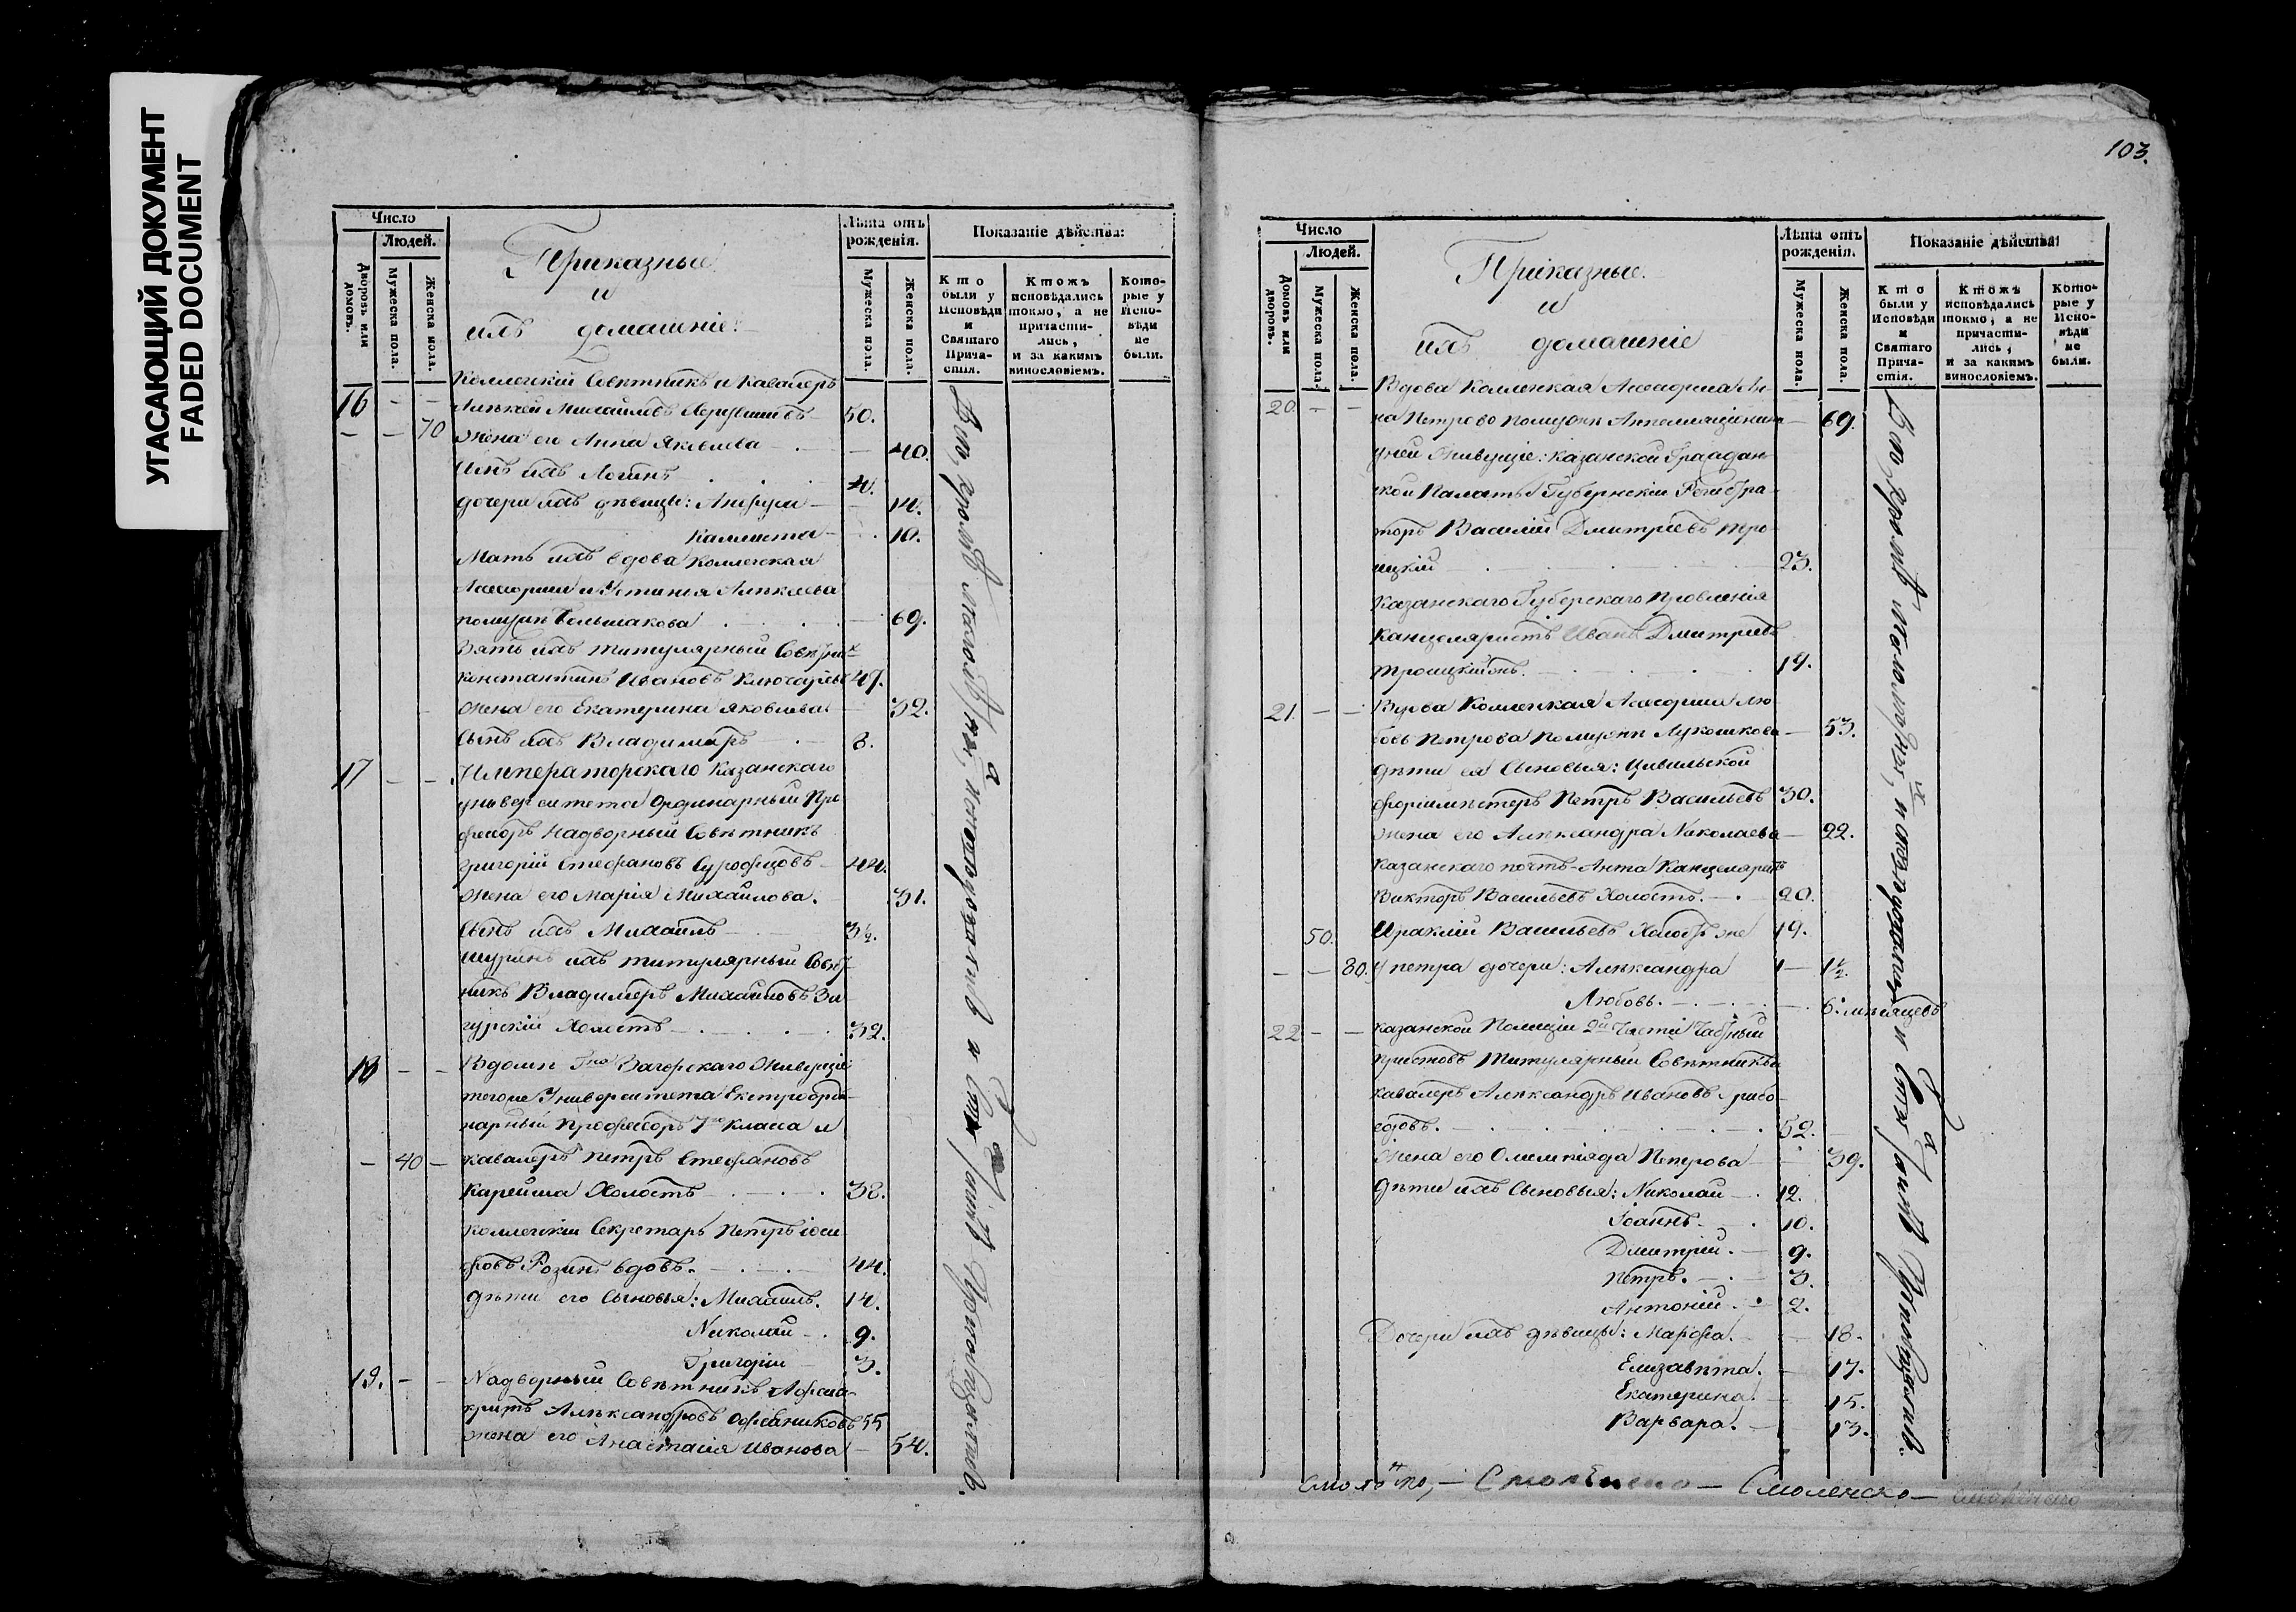 УГАСАЮЩИЙ ДОКУМЕНТ
FADED DOCUMENT
Число
Людей.
Дворовъ или домовъ.
Мужеска пола.
Женска пола.
Приказные
и
ихъ домашніе:
Лѣта отъ рожденія.
Мужеска пола.
Женска пола.
Показаніе дѣйства:
Кто были у Исповѣди и Святаго Прича-стія.
Ктожъ исповѣдались токмо, а не причасти-лись, и за какимъ винословіемъ.
Кото-рые у Испо-вѣди не были.
Коллежскій Совѣтникъ и Кавалеръ
16 - - Алексѣй Михайловъ 50.
- - 70 жена его Анна Яковлева - 40.
Сынъ ихъ Логинъ 4.
дочери ихъ дѣвицы: - 14.
10.
Мать ихъ вдова Коллежская
Ассесорша Устинія Алексѣева
помужѣ Большакова - 69.
Зять ихъ титулярный Совѣтник
Константинъ Ивановъ Ключаревъ 47.
жена его Екатерина Яковлева - 32.
Сынъ ихъ Владимиръ 8.
17 - - Императорскаго Казанскаго
университета Ординарный Про
фесоръ Надворный Совѣтникъ
Григорій Стефановъ Суровцовъ 44.
жена его Марія Михайлова. 31.
Сынъ ихъ Михаилъ 3½.
Шуринъ ихъ титулярный Совѣт
никъ Владимеръ Михайловъ
Холостъ 32.
18 - - Вдомѣ Гна Загорскаго Живущіе
тогоже Университета Екстроорди-
нарный Професоръ 7го класса и
- 40 - кавалеръ Петръ Стефановъ
Карейша Холостъ 38.
Коллежскій Секретарь Петръ Іоси
фовъ Розинъ вдовъ. 44.
дѣти его Сыновья: Михаилъ. 14.
Николай 9.
Григорій 3.
19. - - Надворный Совѣтникъ
Александровъ 55
жена его Анастасія Иванова - 54.
103.
Число
Людей.
Домовъ или дворовъ.
Мужеска пола.
Женска пола.
Приказные.
и
ихъ домашніе
Лѣта отъ рожденія.
Мужеска пола.
Женска пола.
Показаніе дѣйства:
Кто были у Исповѣди и Святаго Прича-стія.
Ктожъ исповѣдались токмо, а не причасти-лись, и за какимъ винословіемъ.
Кото-рые у Испо-вѣди не были.
Вдова Коллежская Ассесорша Ан-
20. - - на Петрово помужѣ - 69.
уней Живущіе: Казанской Граждан
ской Палаты Губернскій Регистра-
торъ Василій Дмитріевъ Тро-
ицкій 23.
Казанскаго Губерскаго Провленія
Канцеляристъ Иванъ Дмитріевъ
Троицкій 19.
21. - - Вдова Коллежская Ассесорша Лю
бовь Петрова помужѣ Лукошкова - 53.
дѣти ея Сыновья: Цивильской
форшместеръ Петръ Васильевъ 30.
жена его Александра Николаева - 22.
Казанскаго почтъ-Амта Канцеляристъ
Викторъ Васильевъ Холостъ. 20.
50. Ираклій Васильевъ Холостъ же 19.
- - 80. у петра дочери: Александра 1½.
Любовь. 6. мѣсяцевъ
22 - - казанской Полиціи 2й Части Частный
приставъ Титулярный Совѣтникъ и
кавалеръ Александръ Ивановъ Грибо-
едовъ. 52.
жена его Олимпіяда Петрова - 39.
дѣти ихъ Сыновья: Николай 12.
Іоаннъ 10.
Дмитрій. 9.
Петръ. 3.
Антоній. 2.
Дочери ихъ дѣвицы: Марфа. 18.
Елизавѣта. 17.
Екатерина. 15.
Варвара. 13.
Смоленско